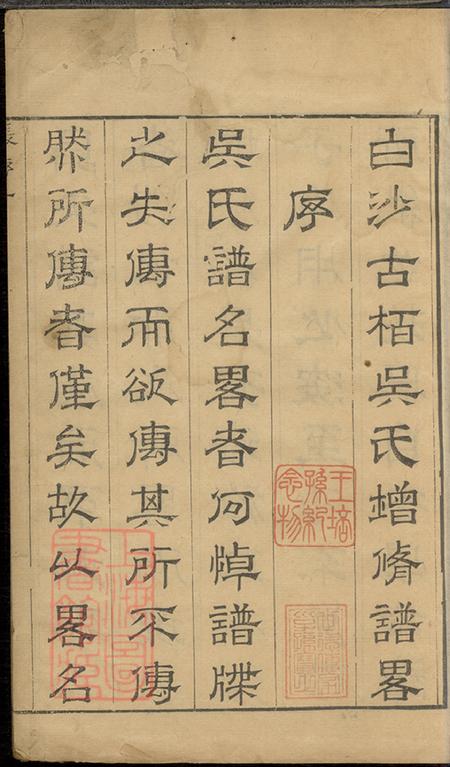 白沙古栢吳氏增脩譜畧
序
吳氏譜名畧者何悼譜牒
之失傳而欲傳其所不傳
然所傳者僅矣故以畧名
王培孫紀念物
上海圖書館藏